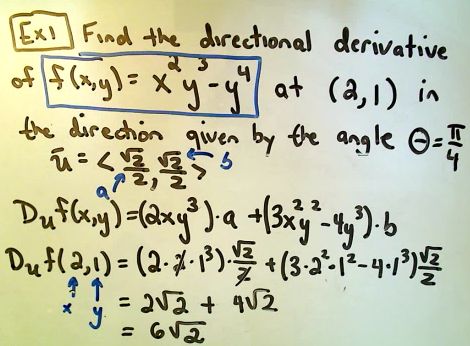 Ex1 Find the directional derivative
of f(x,y) = x²y³-y⁴ at (2,1) in
the direction given by the angle Θ=π/4
ū = <√2/2, √2/2> b
a
Duf(x,y)=(2xy³)·a +(3x²y²-4y³)·b
Duf(2,1)=(2·2·1³)·√2/2 +(3·2²·1²-4·1³)√2/2
x y = 2√2 + 4√2
= 6√2